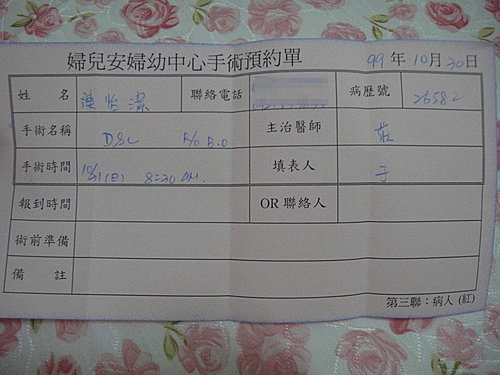 婦兒安婦幼中心手術預約單 99 年 10 月 30 日
姓 名 陳怡潔 聯絡電話 病歷號 26582
手術名稱 DSC R/O B.O 主治醫師 莊
手術時間 10/31(日) 8:30 AM. 填表人 于
報到時間 OR 聯絡人
術前準備
備 註
第三聯：病人 (紅)